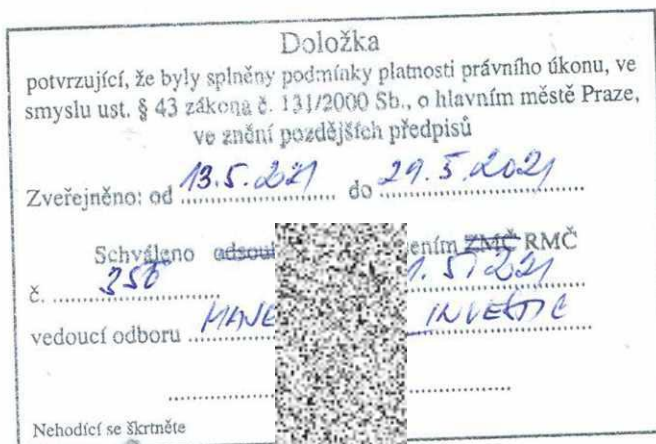 Doložka
potvrzující, že byly splněny podmínky platnosti právního úkonu, ve
smyslu ust. § 43 zákona č. 131/2000 Sb., o hlavním městě Praze,
ve znění pozdějších předpisů
Zveřejněno: od 13.5.2021 do 29.5.2021
Schváleno ením ZMČ RMČ
č.
vedoucí odboru INVESTIC
Nehodící se škrtněte